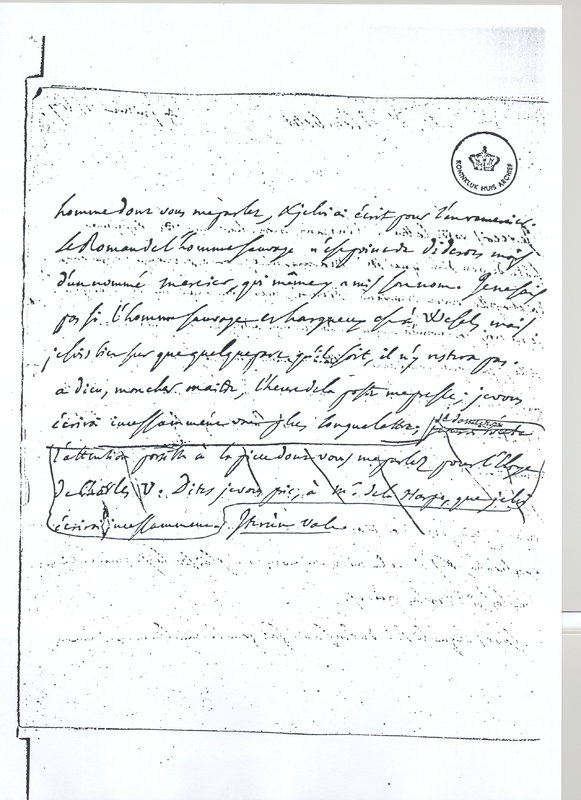 KONINKLIJK HUIS ARCHIEF
homme dont vous me parlez, & je lui ai écrit pour l'en remercier.
Le Roman de l'homme sauvage n'est point de Diderot, mais
d'un nommé mercier, qui même y a mis son nom. Je ne sais
pas si l'homme sauvage et hargneux est à Wesel, mais
je suis bien sûr que quelque part qu'il soit, il n'y restera pas.
adieu, mon cher maitre, l'heure de la poste me presse; je vous
écrirai incessamment une plus longue lettre. je donnerai
l'attention possible à la piece dont vous me parlez pour l'Eloge
de Charles V. Dites, je vous prie, à Mr. de la Harpe, que je lui
écrirai incessamment. Iterum vale.